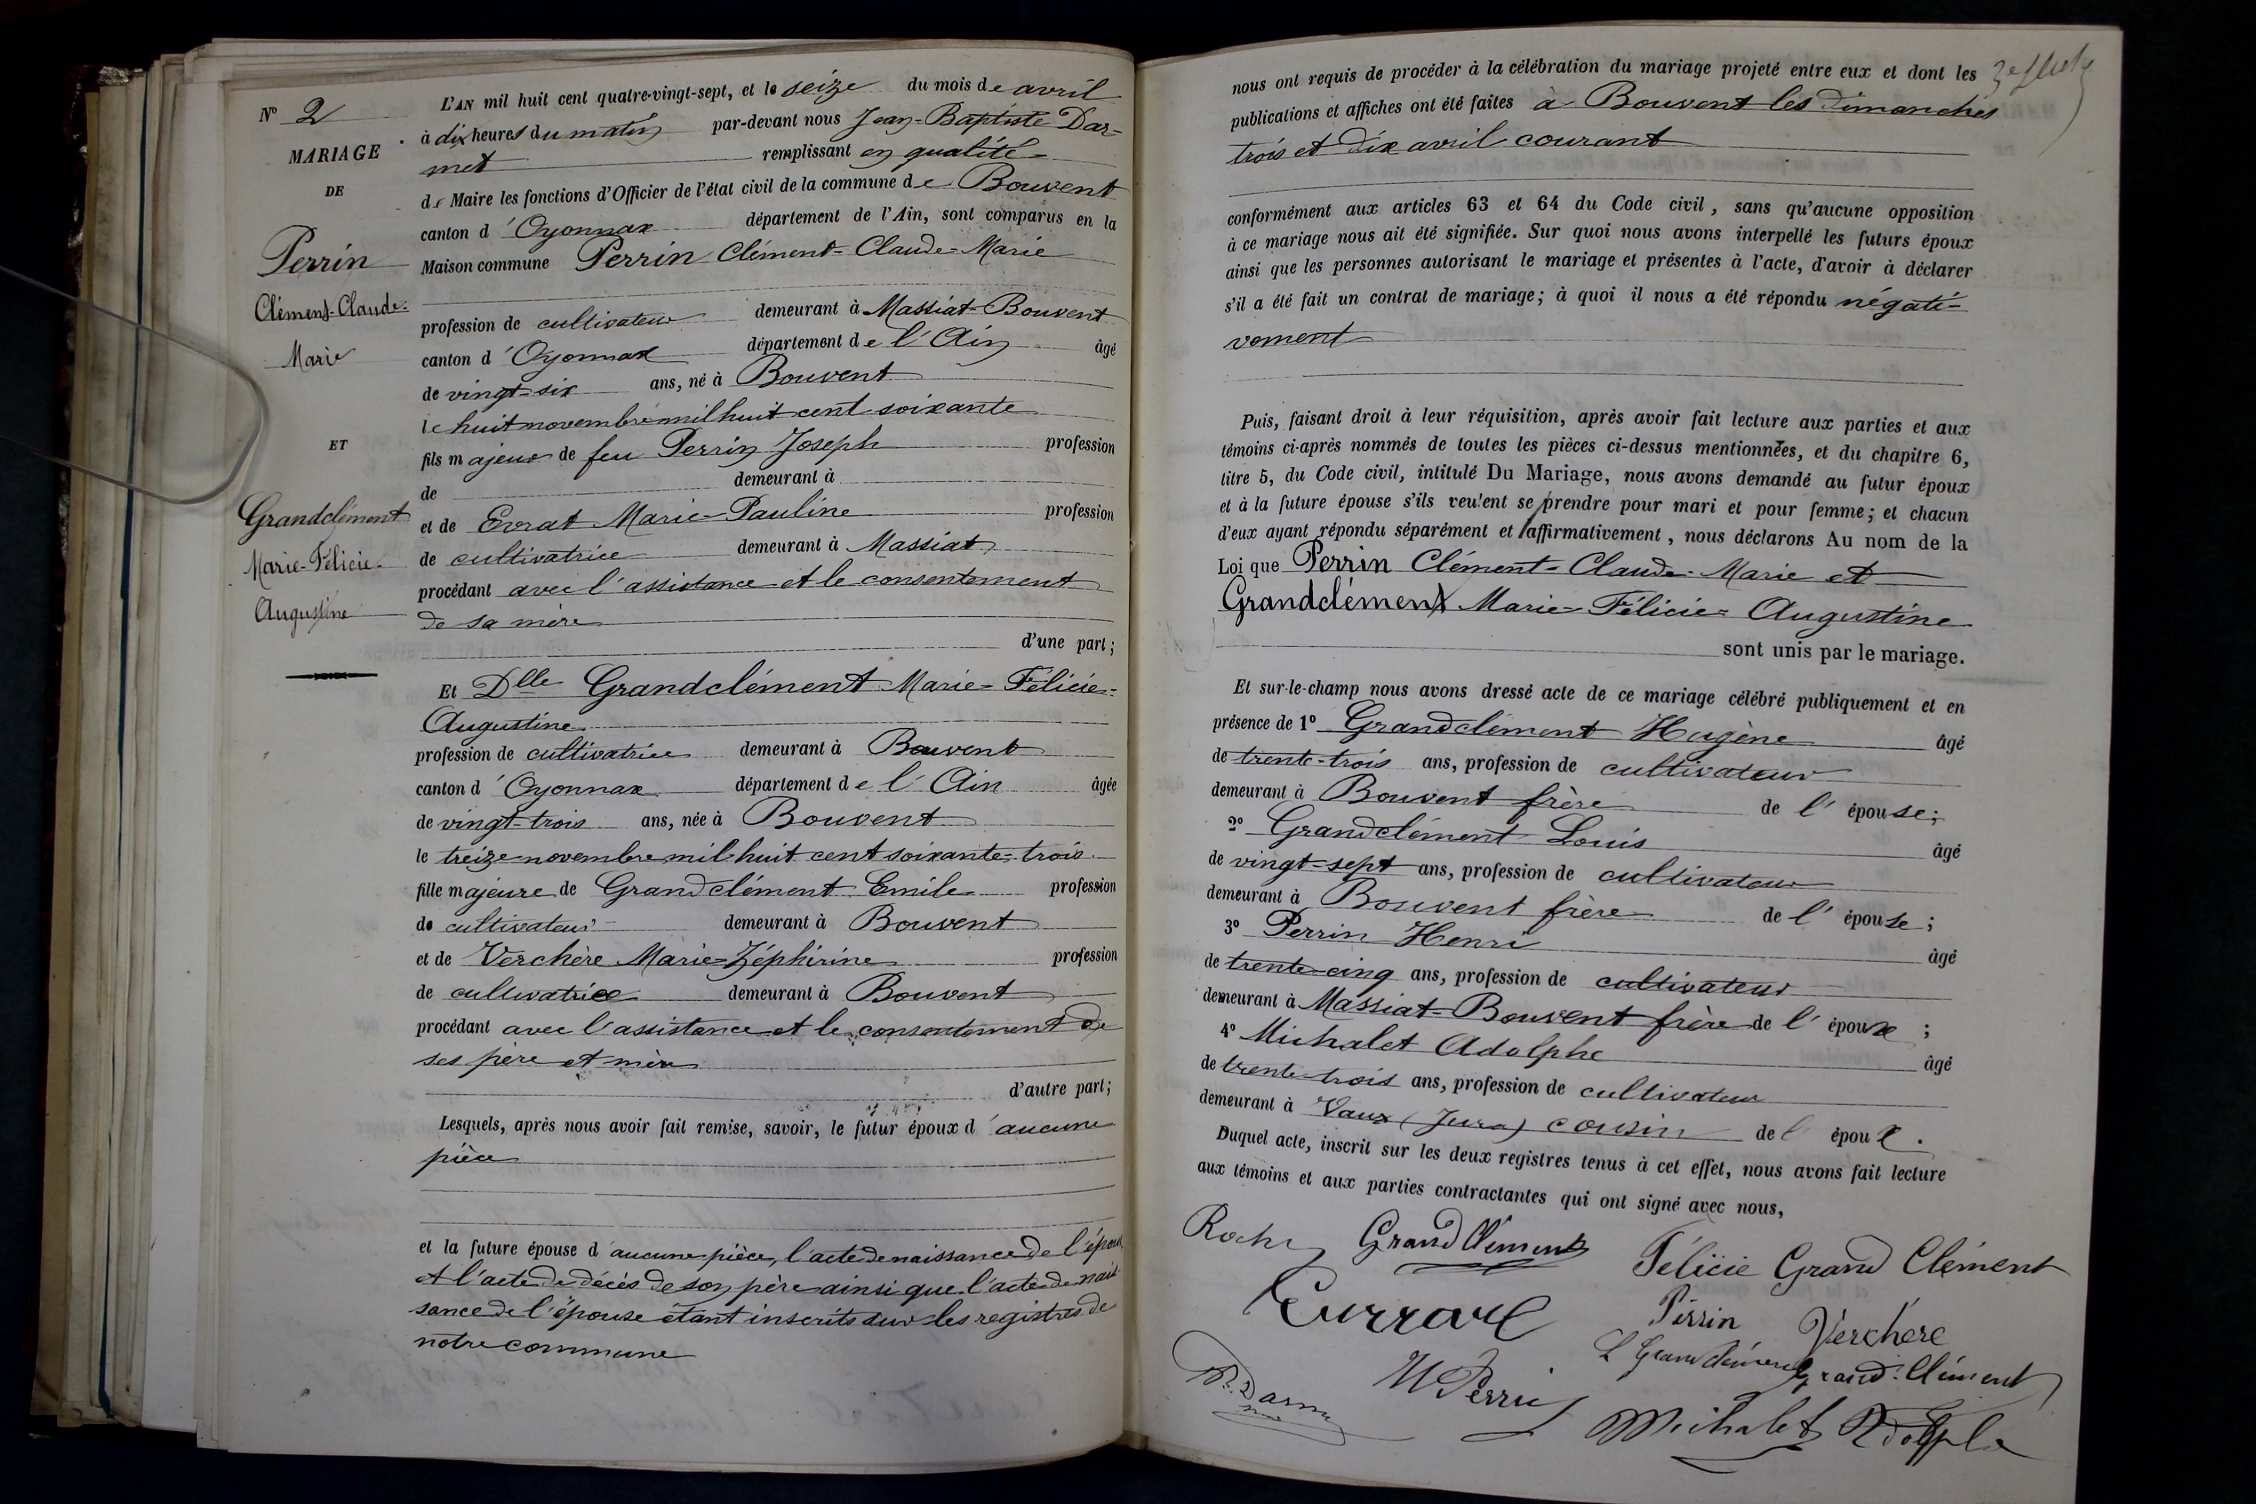 N° 2
MARIAGE
DE
Perrin
Clément-Claude-
Marie
ET
Grandclément
Marie-Félicie-
Augustine
L'AN mil huit cent quatre-vingt-sept, et le seize du mois de avril
à dix heures du matin par-devant nous Jean-Baptiste Dar-
met remplissant en qualité
de Maire les fonctions d'Officier de l'état civil de la commune de Bouvent
canton d'Oyonnax département de l'Ain, sont comparus en la
Maison commune Perrin Clément-Claude-Marie
profession de cultivateur demeurant à Massiat-Bouvent
canton d'Oyonnax département de l'Ain âgé
de vingt-six ans, né à Bouvent
le huit novembre mil huit cent soixante
fils majeur de feu Perrin Joseph profession
de demeurant à
et de Evrat Marie-Pauline profession
de cultivatrice demeurant à Massiat
procédant avec l'assistance et le consentement
de sa mère
d'une part;
Et Dlle Grandclément Marie-Félicie-
Augustine
profession de cultivatrice demeurant à Bouvent
canton d'Oyonnax département de l'Ain âgée
de vingt-trois ans, née à Bouvent
le treize novembre mil huit cent soixante-trois
fille majeure de Grandclément Emile profession
de cultivateur demeurant à Bouvent
et de Verchère Marie-Zéphirine profession
de cultivatrice demeurant à Bouvent
procédant avec l'assistance et le consentement de
ses père et mère
d'autre part;
Lesquels, après nous avoir fait remise, savoir, le futur époux d'aucune
pièce
et la future épouse d'aucune pièce, l'acte de naissance de l'époux
et l'acte de décès de son père ainsi que l'acte de nais
sance de l'épouse étant inscrits sur les registres de
notre commune
nous ont requis de procéder à la célébration du mariage projeté entre eux et dont les
publications et affiches ont été faites à Bouvent les dimanches
trois et dix avril courant
conformément aux articles 63 et 64 du Code civil, sans qu'aucune opposition
à ce mariage nous ait été signifiée. Sur quoi nous avons interpellé les futurs époux
ainsi que les personnes autorisant le mariage et présentes à l'acte, d'avoir à déclarer
s'il a été fait un contrat de mariage; à quoi il nous a été répondu négati-
vement
Puis, faisant droit à leur réquisition, après avoir fait lecture aux parties et aux
témoins ci-après nommés de toutes les pièces ci-dessus mentionnées, et du chapitre 6,
titre 5, du Code civil, intitulé Du Mariage, nous avons demandé au futur époux
et à la future épouse s'ils veulent se prendre pour mari et pour femme; et chacun
d'eux ayant répondu séparément et affirmativement, nous déclarons Au nom de la
Loi que Perrin Clément-Claude-Marie et
Grandclément Marie-Félicie-Augustine
sont unis par le mariage.
Et sur-le-champ nous avons dressé acte de ce mariage célébré publiquement et en
présence de 1° Grandclément Hugène âgé
de trente-trois ans, profession de cultivateur
demeurant à Bouvent frère de l'épouse;
2° Grandclément Louis âgé
de vingt-sept ans, profession de cultivateur
demeurant à Bouvent frère de l'épouse;
3° Perrin Henri âgé
de trente-cinq ans, profession de cultivateur
demeurant à Massiat-Bouvent frère de l'époux;
4° Michalet Adolphe âgé
de trente-trois ans, profession de cultivateur
demeurant à Vaux (Jura) cousin de l'époux.
Duquel acte, inscrit sur les deux registres tenus à cet effet, nous avons fait lecture
aux témoins et aux parties contractantes qui ont signé avec nous,
Grand Clément
Félicie Grand Clément
Perrin
Verchère
L Grandclément
Grand-Clément
H Perrin
Michalet Adolphe